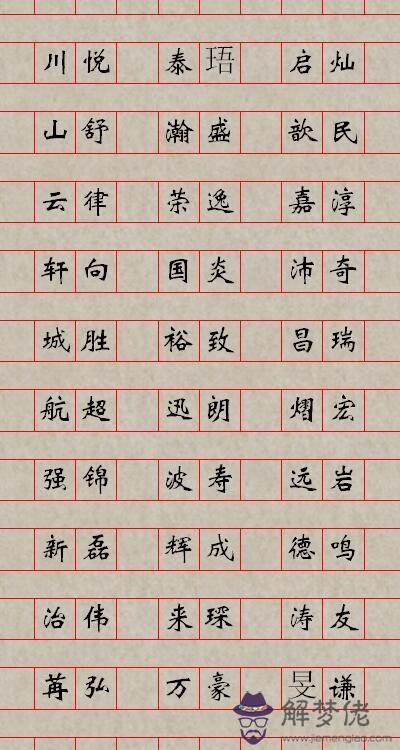 川悦 泰珸 启灿
山舒 瀚盛 歆民
云律 荣逸 嘉淳
轩向 国炎 沛奇
城胜 裕致 昌瑞
航超 迅朗 熠宏
强锦 波寿 远岩
新磊 辉成 德鸣
治伟 来琛 涛友
苒弘 万豪 旻谦
解梦佬
www.jiemenglao.com